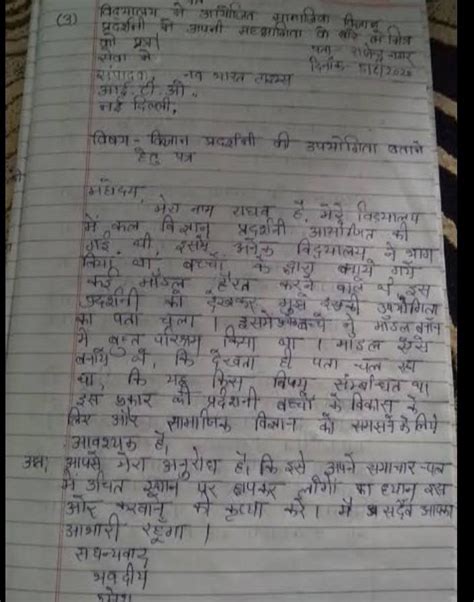 (3) विद्यालय में आयोजित सामाजिक विज्ञान
प्रदर्शनी में अपनी सहभागिता के बारे में मित्र
को पत्र।
पता- राजेन्द्र नगर
सेवा में
दिनांक-
संपादक, नव भारत टाइम्स
आई. टी. ओ.
नई दिल्ली,
विषय- विज्ञान प्रदर्शनी की उपयोगिता बताने
हेतु पत्र
महोदय,
मेरा नाम राघव है, मेरे विद्यालय
में कल विज्ञान प्रदर्शनी आयोजित की
गई थी, इसमें अनेक विद्यालय ने भाग
किया था बच्चों के द्वारा बनाये गये
कई मॉडल हैरत करने वाले थे इस
प्रदर्शनी को देखकर मुझे इसकी उपयोगिता
का पता चला। इसमें बच्चों ने मॉडल बनाने
में बहुत परिश्रम किया था। मॉडल ऐसे
बनाये थे, कि देखते ही पता चल रहा
था, कि यह किस विषय संम्बंधित था
इस प्रकार की प्रदर्शनी बच्चों के विकास के
लिए और सामाजिक विज्ञान को समझने के लिये
आवश्यक है,
अतः आपसे मेरा अनुरोध है, कि इसे अपने समाचार-पत्र
में उचित स्थान पर छापकर लोगों का ध्यान इस
ओर करवाने की कृप्या करे। मैं सदैव आपका
आभारी रहूगा।
सधन्यवाद
भवदीय